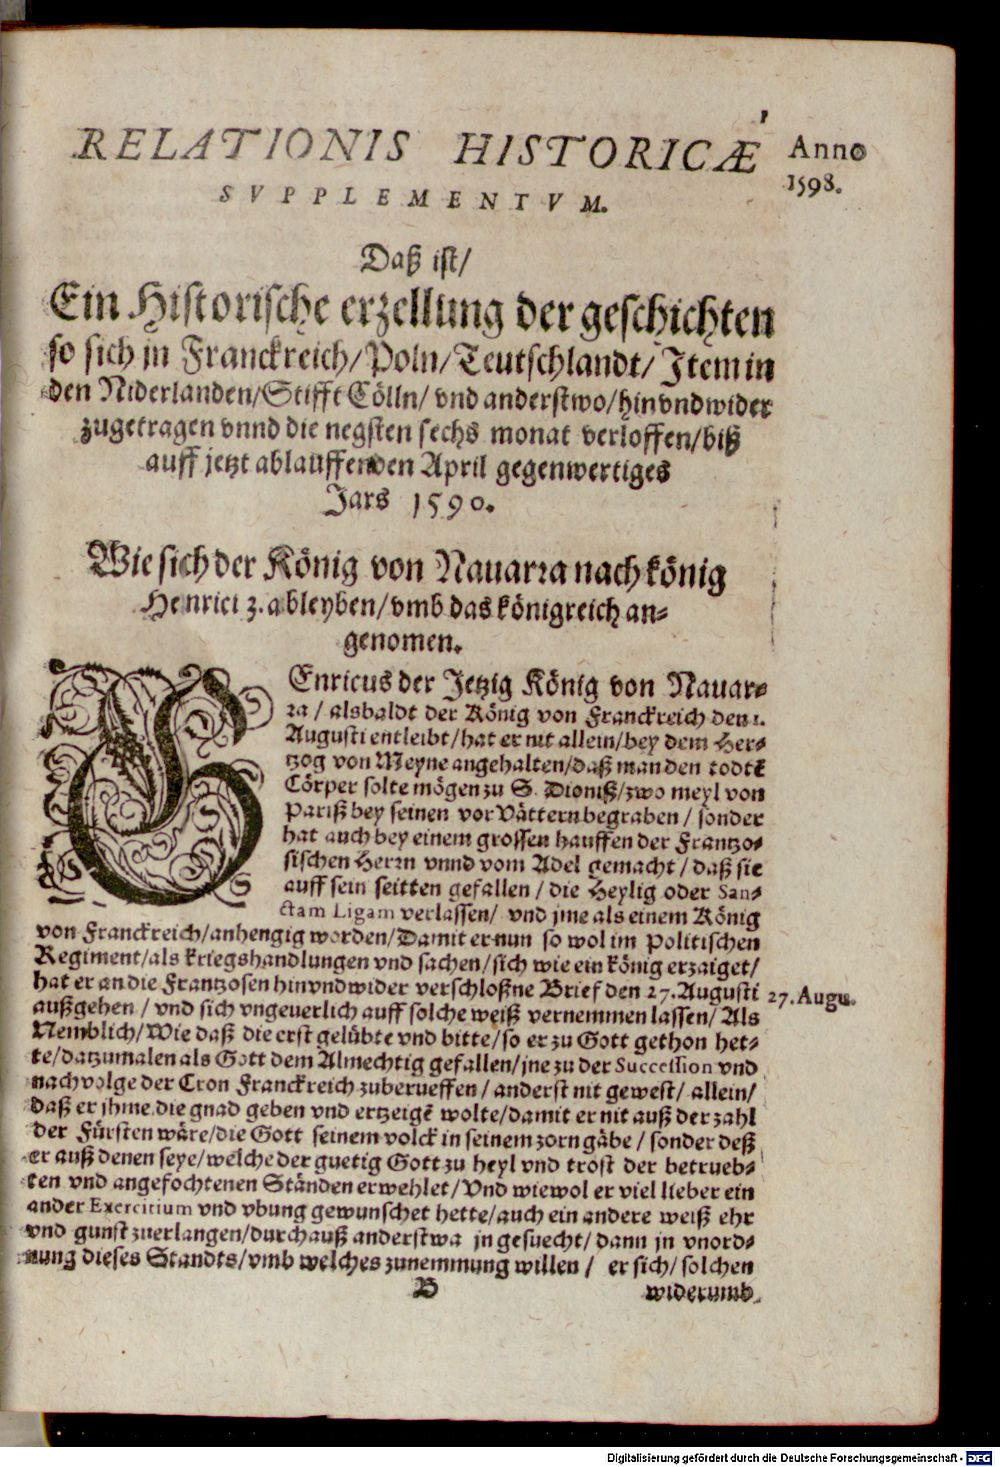 1
RELATIONIS HISTORICÆ
Anno
1598.
SVPPLEMENTVM.
Daß ist/
Ein Historische erzellung der geschichten
so sich jn Franckreich/Poln/Teutschlandt/ Jtem in
den Niderlanden/Stifft Cölln/ vnd anderstwo/hin vnd wider
zugetragen vnnd die negsten sechs monat verloffen/biß
auff jetzt ablauffenden April gegenwertiges
Jars 1590.
Wie sich der König von Nauarra nach könig
Henrici 3. ableyben/vmb das königreich an-
genomen.
Enricus der Jetzig König von Nauar-
ra / alsbaldt der König von Franckreich den 1.
Augusti entleibt/hat er nit allein/bey dem Her-
tzog von Meyne angehalten/daß man den todtē
Cörper solte mögen zu S. Dioniß/zwo meyl von
Pariß bey seinen vor Vättern begraben / sonder
hat auch bey einem grossen hauffen der Frantzo-
sischen Herrn vnnd vom Adel gemacht / daß sie
auff sein seitten gefallen / die Heylig oder San-
ctam Ligam verlassen/ vnd jme als einem König
von Franckreich/anhengig worden/Damit er nun so wol im Politischen
Regiment/als kriegshandlungen vnd sachen/sich wie ein könig erzaiget/
hat er an die Frantzosen hin vnd wider verschloßne Brief den 27. Augusti
27. Augu.
außgehen / vnd sich vngeuerlich auff solche weiß vernemmen lassen/ Als
Nemblich/Wie daß die erst gelübte vnd bitte/so er zu Gott gethon het-
te/datzumalen als Gott dem Almechtig gefallen/jne zu der Succession vnd
nachvolge der Cron Franckreich zuberueffen / anderst nit gewest / allein/
daß er jhme die gnad geben vnd ertzeigē wolte/damit er nit auß der zahl
der Fürsten wäre/die Gott seinem volck in seinem zorn gäbe / sonder deß
er auß denen seye/welche der guetig Gott zu heyl vnd trost der betrueb-
ten vnd angefochtenen Ständen erwehlet/Vnd wiewol er viel lieber ein
ander Exercitium vnd vbung gewunschet hette/auch ein andere weiß ehr
vnd gunst zuerlangen/durchauß anderstwa jn gesuecht/ dann jn vnord-
nung dieses Standts/vmb welches zunemmung willen / er sich/ solchen
B
widerumb
Digitalisierung gefördert durch die Deutsche Forschungsgemeinschaft - DFG